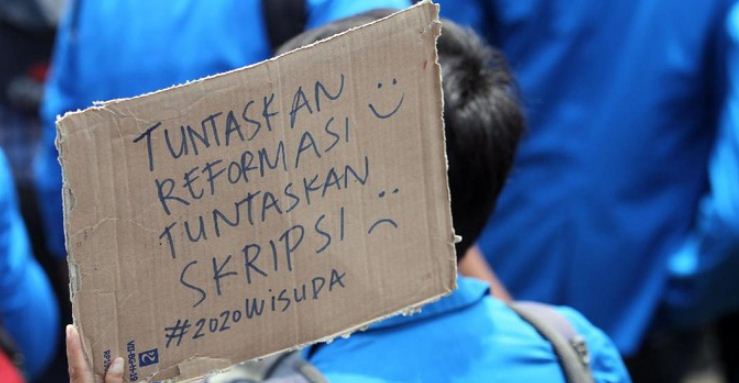 TUNTASKAN
REFORMASI
TUNTASKAN
SKRIPSI
#2020WISUDA